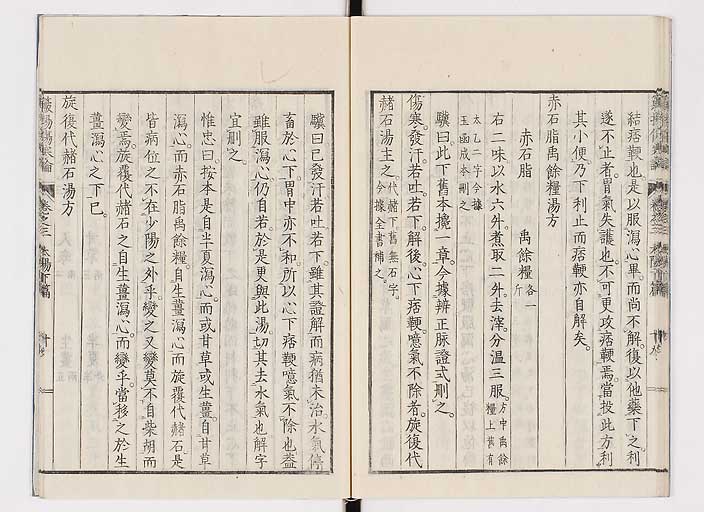 結痞鞕也是以服瀉心畢而尚不解復以他藥下之利
遂不止者胃氣失護也不可更攻痞鞕焉當投此方利
其小便乃下利止而痞鞕亦自解矣
赤石脂禹餘糧湯方
赤石脂 禹餘糧各一斤
右二味以水六升煮取二升去滓分溫三服方中禹餘糧上舊有
太乙二字今據玉函成本刪之
驥曰此下舊本攙一章今據辨正脉證式刪之
傷寒發汗若吐若下解後心下痞鞕噫氣不除者旋復代
赭石湯主之代赭下舊無石字今據全書補之
驥曰已發汗若吐若下雖其證解而病猶未治水氣停
畜於心下胃中亦不和所以心下痞鞕噫氣不除也蓋
雖服瀉心仍自若於是更與此湯切其去水氣也解字
宜刪之
惟忠曰按本是自半夏瀉心而或甘草或生薑自甘草
瀉心而赤石脂禹餘糧自生薑瀉心而旋覆代赭石是
皆病位之不在少陽之外乎變之又變莫不自柴胡而
變焉旋覆代赭石之自生薑瀉心而變乎當移之於生
薑瀉心之下已
旋復代赭石湯方